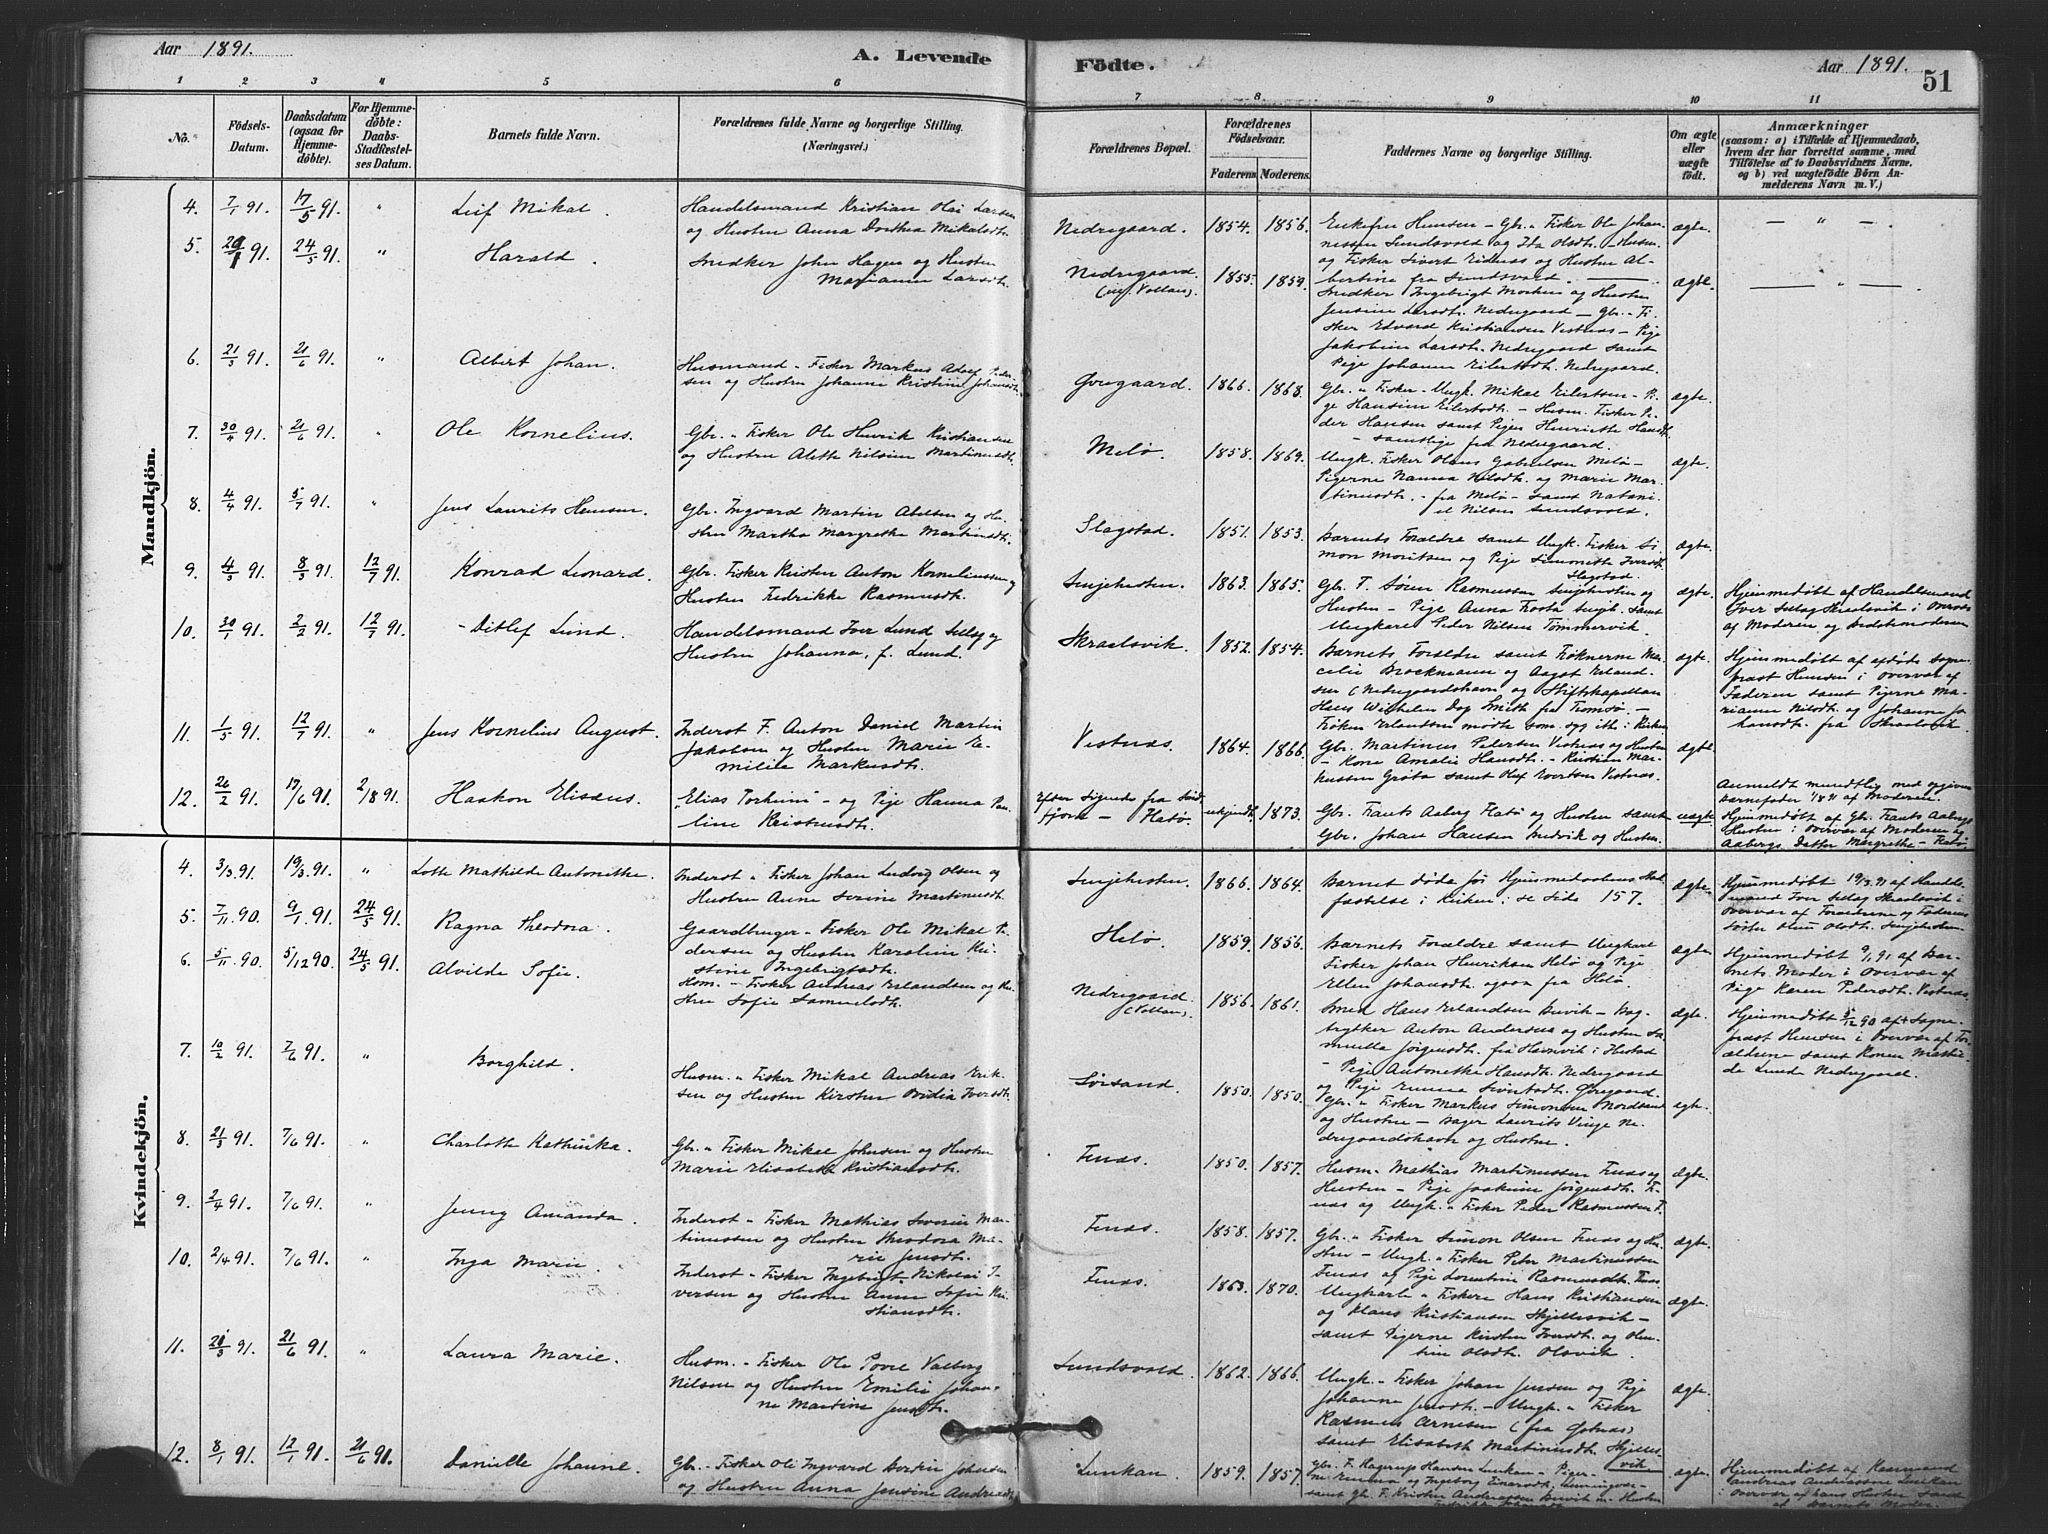 Aar 1891.
A. Levende Födte.
Aar 1891.
51
1 2 3 4 5 6 7 8 9 10 11
No.
Födsels-Datum.
Daabsdatum (ogsaa for Hjemme-döbte).
For Hjemme-döbte: Daabs-Stadfestel-ses Datum.
Barnets fulde Navn.
Forældrenes fulde Navne og borgerlige Stilling. (Næringsvei.)
Forældrenes Bopæl.
Forældrenes Födselsaar.
Faderens. Moderens.
Faddernes Navne og borgerlige Stilling.
Om ægte eller uægte födt.
Anmærkninger
(saasom: a) i Tilfælde af Hjemmedaab,
hvem der har forrettet samme, med
Tilföielse af to Daabsvidners Navne.
og b) ved uægtefödte Börn An-
melderens Navn m. V.)
Mandkjön.
4. 7/1 91. 17/5 91. " Leif Mikal.
Handelsmand Kristian Olai Larsen
og Hustru Anna Dorthea Mikalsdt.
Nedregaard. 1854. 1856.
Enkefru Hensen - Gbr. " Fisker Ole Johan-
nessen Sundsvold og Ida Olsdt. - Husm.
og Fisker Sivert Eidnes og Hustru Al-
bertine fra Sundsvold.
ægte. — " —
5. 20/1 91. 24/5 91. " Harald.
Snedker John Hagen og Hustru
Marianne Larsdt.
Nedregaard (Vollan). 1855. 1859.
Snedker Ingebrigt Morten og Hustru
Jensine Larsdt. Nedregaard - Gbr. - Fi-
sker Edvard Kristiansen Vestnes - Pige
Jakobine Larsdt. Nedregaard samt
Pige Johanna Eilertsdt. Nedregaard.
ægte. — " —
6. 21/3 91. 21/6 91. " Albert Johan.
Husmand - Fisker Markus Adolf Peder-
sen og Hustru Johanne Kristine Johansdt.
1866. 1868.
Gbr. " Fisker - Ungk. Mikal Eilertsen - Pi-
ge Hansine Eilertsdt. - Husm. Fisker Pe-
der Hansen samt Pigen Henriette Hansdt.
- samtlige fra Nedregaard.
ægte.
7. 30/4 91. 21/6 91. " Ole Kornelius.
Gbr. " Fisker Ole Henrik Kristiansen
og Hustru Aleth Nilsine Martinusdt.
Melö. 1858. 1869.
Ungk. Fisker Olaus Gabrielsen Melö -
Pigerne Nanna Nilsdt. og Marie Mar-
tinusdt. - fra Melö - samt Natani-
el Nilsen Sundsvold.
ægte.
8. 4/4 91. 5/7 91. " Jens Laurits Hensen.
Gbr. Ingvard Martin Abelsen og Hu-
stru Martha Margrethe Martinusdt.
Slagstad. 1851. 1853.
Barnets Forældre samt Ungk. Fisker Si-
mon Moritsen og Pige Simonette Iversdt.
Slagstad.
ægte.
9. 4/3 91. 8/3 91. 12/7 91. Konrad Leonard.
Gbr. Fisker Kristen Anton Korneliussen og
Hustru Fredrikke Rasmusdt.
Senjehesten. 1863. 1865.
Gbr. F. Sören Rasmussen Senjehesten og
Hustru - Pige Anna samt
Ungkarl Peder Nilsen Tömmervik.
ægte.
Hjemmedöbt af Handelsmand
Iver Selseg Skrolsvik i Overvær
af Moderen og Bedstemoderen
10. 30/1 91. 2/2 91. 12/7 91. Ditlef Lund.
Handelsmand Iver Lund og
Hustru Johanna, f. Lund.
Skrolsvik. 1852. 1854.
Barnets Forældre samt Fröknerne Mar-
celie Brockmann og Aagot Erland-
sen (Nedregaardshavn og Stiftskapellan
Hans Wilhelm Dop Smith fra Tromsö. -
Fröken Erlandsen mödte som syg ikke i Kirken
ægte.
Hjemmedöbt af afdöde Sogne-
præst Hensen i Overvær af
Faderen samt Pigerne Ma-
rianne Nilsdt. og Johanna Jo-
hansdt. fra Skrolsvik.
11. 1/5 91. 12/7 91. " Jens Kornelius August.
Inderst F. Anton Daniel Martin
Jakobsen og Hustru Marie E-
milie Markusdt.
Vestnes. 1864. 1866.
Gbr. Martinus Pedersen Vestnes og Hustru
- Kone Amalie Hansdt. - Kristian Mar-
kussen Gröta samt Olaf Evertsen Vestnes.
ægte.
12. 26/2 91. 17/6 91. 2/8 91. Haakon Elisæus.
"Elias " - og Pige Hanna Pau-
line Kristensdt.
Efter Sigende fra
fjord - Hatö. ukjendt. 1873.
Gbr. Frants Aaberg Hatö og Hustru samt
Gbr. Johan Hansen og Hustru.
uægte.
Anmeldt mundtlig med opgiven
Barnefader 1/8 91 af Moderen.
Hjemmedöbt af Gbr. Frants Aabergs
Hustru i Overvær af Moderen og
Aabergs Datter Margrethe - Hatö.
Kvindekjön.
4. 3/3 91. 19/3 91. " Lotte Mathilde Antonette.
Inderst " Fisker Johan Ludvig Olsen og
Hustru Anne Serine Martinusdt.
Senjehesten. 1866. 1864.
Barnet döde för Hjemmedaabens Stad-
fæstelse i Kirken: se Side 157.
ægte.
Hjemmedöbt 19/3 91 af Handels-
mand Iver Skrolsvik i
Overvær af Forældrene og Faderens
Söster Olsdt. Senjehesten
5. 7/11 90. 9/1 91. 24/5 91. Ragna Theodora.
Gaardbruger - Fisker Ole Mikal Pe-
dersen og Hustru Karoline Kri-
stine Ingebrigtsdt.
Helö. 1859. 1856.
Barnets Forældre samt Ungkarl
Fisker Johan Henriksen Helö og Pige
Ellen Johansdt. ogsaa fra Helö.
ægte.
Hjemmedöbt 9/1 91 af Bar-
nets Moder i Overvær af
Pige Karen Pedersdt. Vestnes.
6. 5/11 90. 5/12 90. 24/5 91. Alvilde Sofie.
Husm. - Fisker Andreas Erlandsen og Hu-
stru Sofie Samuelsdt.
Nedregaard (Vollan). 1856. 1861.
Smed Hans Erlandsen Buvik - Bog-
trykker Anton Andersen og Hustru Sa-
muella Jörgensdt. fra Havnvik i
- Pige Antonette Hansdt. Nedregaard
og Pige Emma Sivertsdt.
ægte.
Hjemmedöbt 5/12 90 af † Sogne-
præst Hensen i Overvær af For-
ældrene samt Konen Mathil-
de Lund Nedregaard.
7. 10/2 91. 7/6 91. " Borghild.
Husm. " Fisker Mikal Andreas Erik-
sen og Hustru Kirsten Ovidia Iversdt.
Sörsand. 1850. 1850.
Gbr. " Fisker Markus Simonsen Nordsand
og Hustru - Bager Laurits Vinge Ne-
dregaardshavn og Hustru.
ægte.
8. 21/3 91. 7/6 91. " Charlotte Kathinka.
Gbr. " Fisker Mikal Johnsen og Hustru
Marie Elisabeth Kristiansdt.
Finæs. 1850. 1857.
Husm. Mathias Martinussen Finæs og
Hustru - Pige Joakime Jörgensdt. Fi-
næs og Ungk. " Fisker Peder Rasmussen F.
ægte.
9. 2/4 91. 7/6 91. " Jenny Amanda.
Inderst " Fisker Mathias Severin Mar-
tinussen og Hustru Theodora Ma-
rie Jensdt.
Finæs. 1858. 1857.
Gbr. " Fisker Simon Olsen Finæs og Hu-
stru - Ungk. " Fisker Peter Martinussen
Finæs og Pige Lorentine Rasmusdt. Finæs
ægte.
10. 2/4 91. 7/6 91. " Inga Marie.
Inderst " Fisker Ingebrigt Nikolai I-
versen og Hustru Anne Sofie Kri-
stiansdt.
Finæs. 1863. 1870.
Ungkarle " Fiskere Hans Kristiansen
og Klaus Kristiansen Skjellesvik -
samt Pigerne Kirsten Iversdt. og Olu-
fine Olsdt. Olsvik.
ægte.
11. 21/3 91. 21/6 91. " Laura Marie.
Husm. - Fisker Ole Povel Valberg
Nilsen og Hustru Emilie Johan-
ne Martine Jensdt.
Sundsvold. 1862. 1866.
Ungk. - Fisker Johan Jensen og Pige
Johanna Jensdt. - Ungk. " Fisker
Rasmus Arnesen (fra )
samt Elisabeth Martinusdt. Skjelles-
vik.
ægte.
12. 8/1 91. 12/1 91. 21/6 91. Danielle Johanne.
Gbr. - Fisker Ole Ingvard Bertin Johnsen
og Hustru Anna Jensine Andreasdt.
Lunkan. 1859. 1857.
Gbr. F. Hagerup Hansen Lunkan - Piger-
ne Emma og Ingeborg Einarsdt.
samt Gbr. F. Kristen Andreassen Buvik og Hustru
ægte.
Hjemmedöbt af Kaarmand
Andreas Andreassen Lunkan
i Overvær af hans Hustru samt
af Barnets Moder.